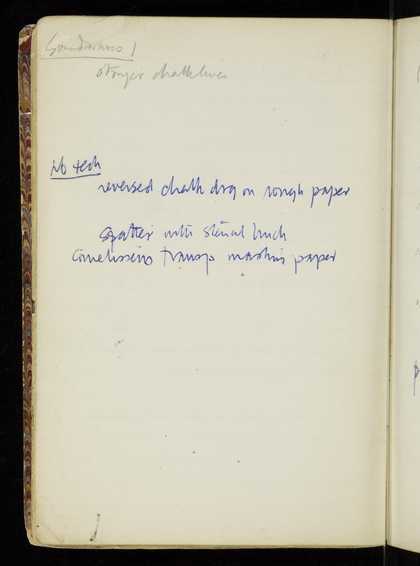 stronger chalk lines
Nb tech
reversed chalk drg on rough paper
spatter with stencil brush
cornelissens transp masking paper